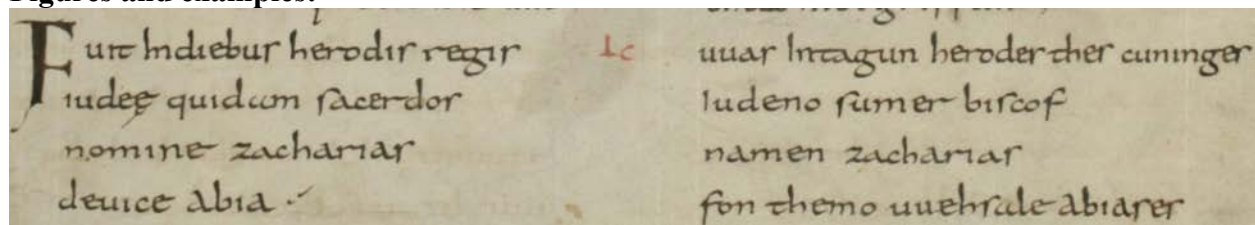 Figures and examples
Fuit Indiebus herodis regis
iudeę quidam sacerdos
nomine zacharias
deuice abia ·
Lc
uuas Intagun herodes thes cuninges
Iudeno sumer biscof
namen zacharias
fon themo uuehsale abiases